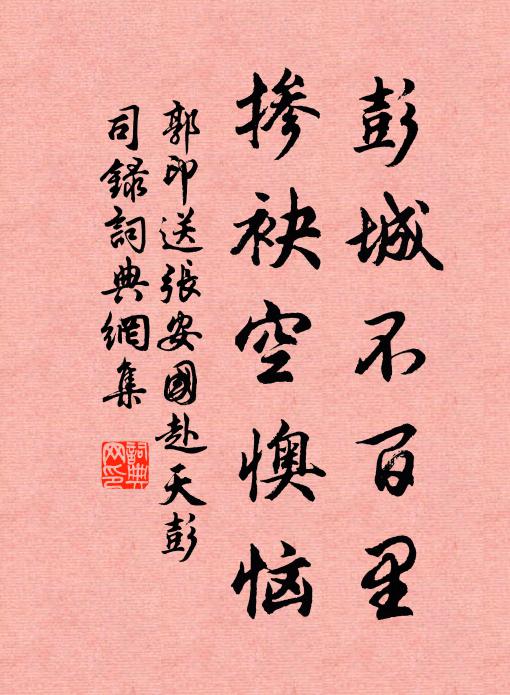 彭城不百里
掺袂空懊恼
郭印送張安國赴天彭
司録詞典網集
詞典
网印